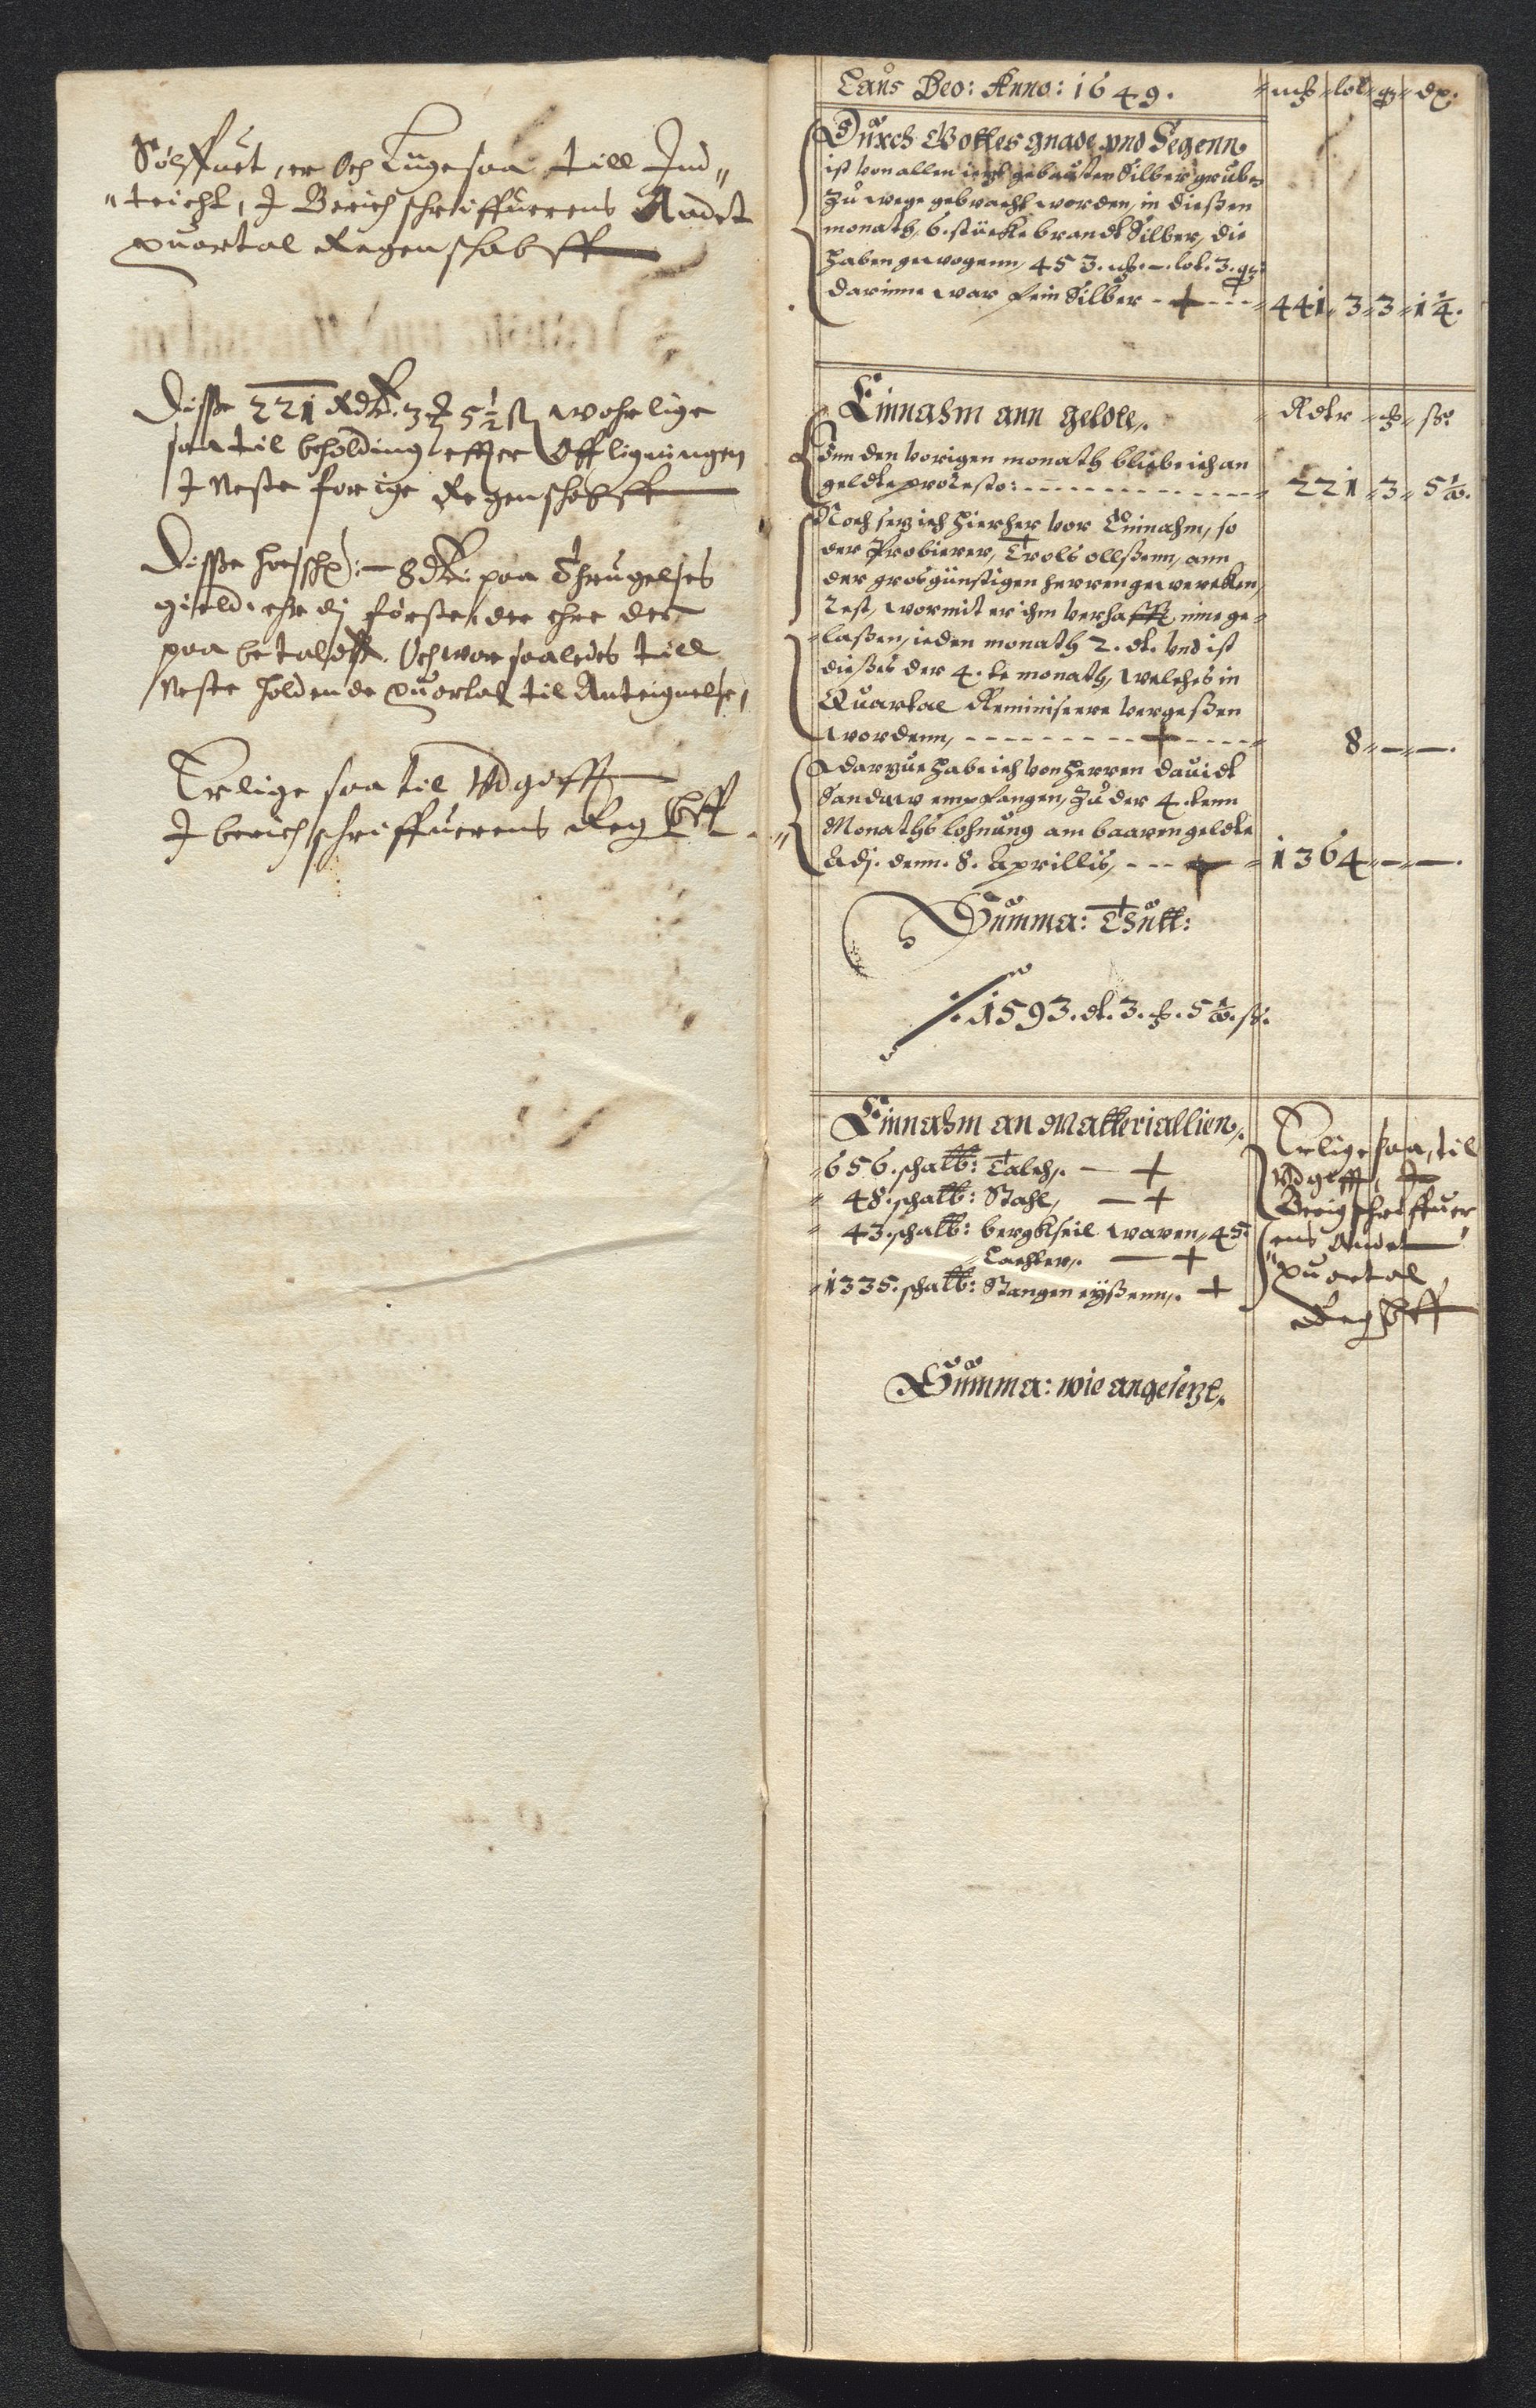 Sølffuet, er Och Lige saa till Ind„
„teicht, I Berich schriffuerens Andet
quartal Regenskabff
Disse 221 Rdlr. 3 ₰ 5½ ß wohrlige
saa til beholding effter Offligningen
I Neste forige Regenschabff
Disse 8 dlr: paa
gield, ehr dj første, der ehre der
paa betaldtt. Och wor saaledes till
Neste holdende quartal til Anteignelse,
Erlige saa til Wdgifft
I berichschriffuerens Reg bff
Laus Deo: Anno: 1649. mk lot q dp:
Durch Gottes gnade und Segenn
ist von allen ietzt gebauten Silbergruben
zu wege gebracht worden, in dießen
monath, 6. stücke brandt Silber, die
haben gewogenn, 453. mk. —. lot. 3. q:
darinne war fein Silber - + - - - 441 3 3 1¼.
Einnahm ann geldte,. Rdlr mk ß:
Inn den vorigen monath bliebe ich an
geldte pro resto: - - - 221 3 5½.
Noch setz ich hierher vor Einnahm, so
der Probierer, Trols ollßenn, ann
der grosgünstigen herren gewercken,
rest, wormit er ihm verhafft, inne ge-
laßen, ieden monath 2. dl. und ist
dießes der 4. te monath, welches in
Quartal Reminiscere vergeßen
wordenn, - - - + - - - 8 — —.
darzue habe ich von herren Davidt
Sandaw empfangen, zu der 4. tenn
Monaths lohnung am baaren geldte
Adj. denn. 8. Aprillis, - - - + 1364 — —.
Summa: Thutt:
1593. dl. 3. mk. 5½. ß.
Einnahm an Matteriallien,.
656. schalb: Talch,. — +
48. schalb: Stahl, — +
43. schalb: bergkseil waren, 45.
Lachter,. — +
1335. schalb: Stangen eyßenn,. +
Erlige saa, til
Wdgifft, I
Berigschriffuer
ens Andet
quartal
Reg bff
Summa: wie angesetzt,.